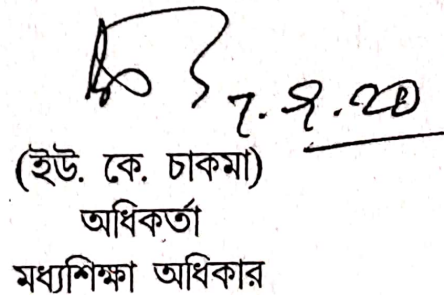 7.9.20
(ইউ. কে. চাকমা)
অধিকর্তা
মধ্যশিক্ষা অধিকার